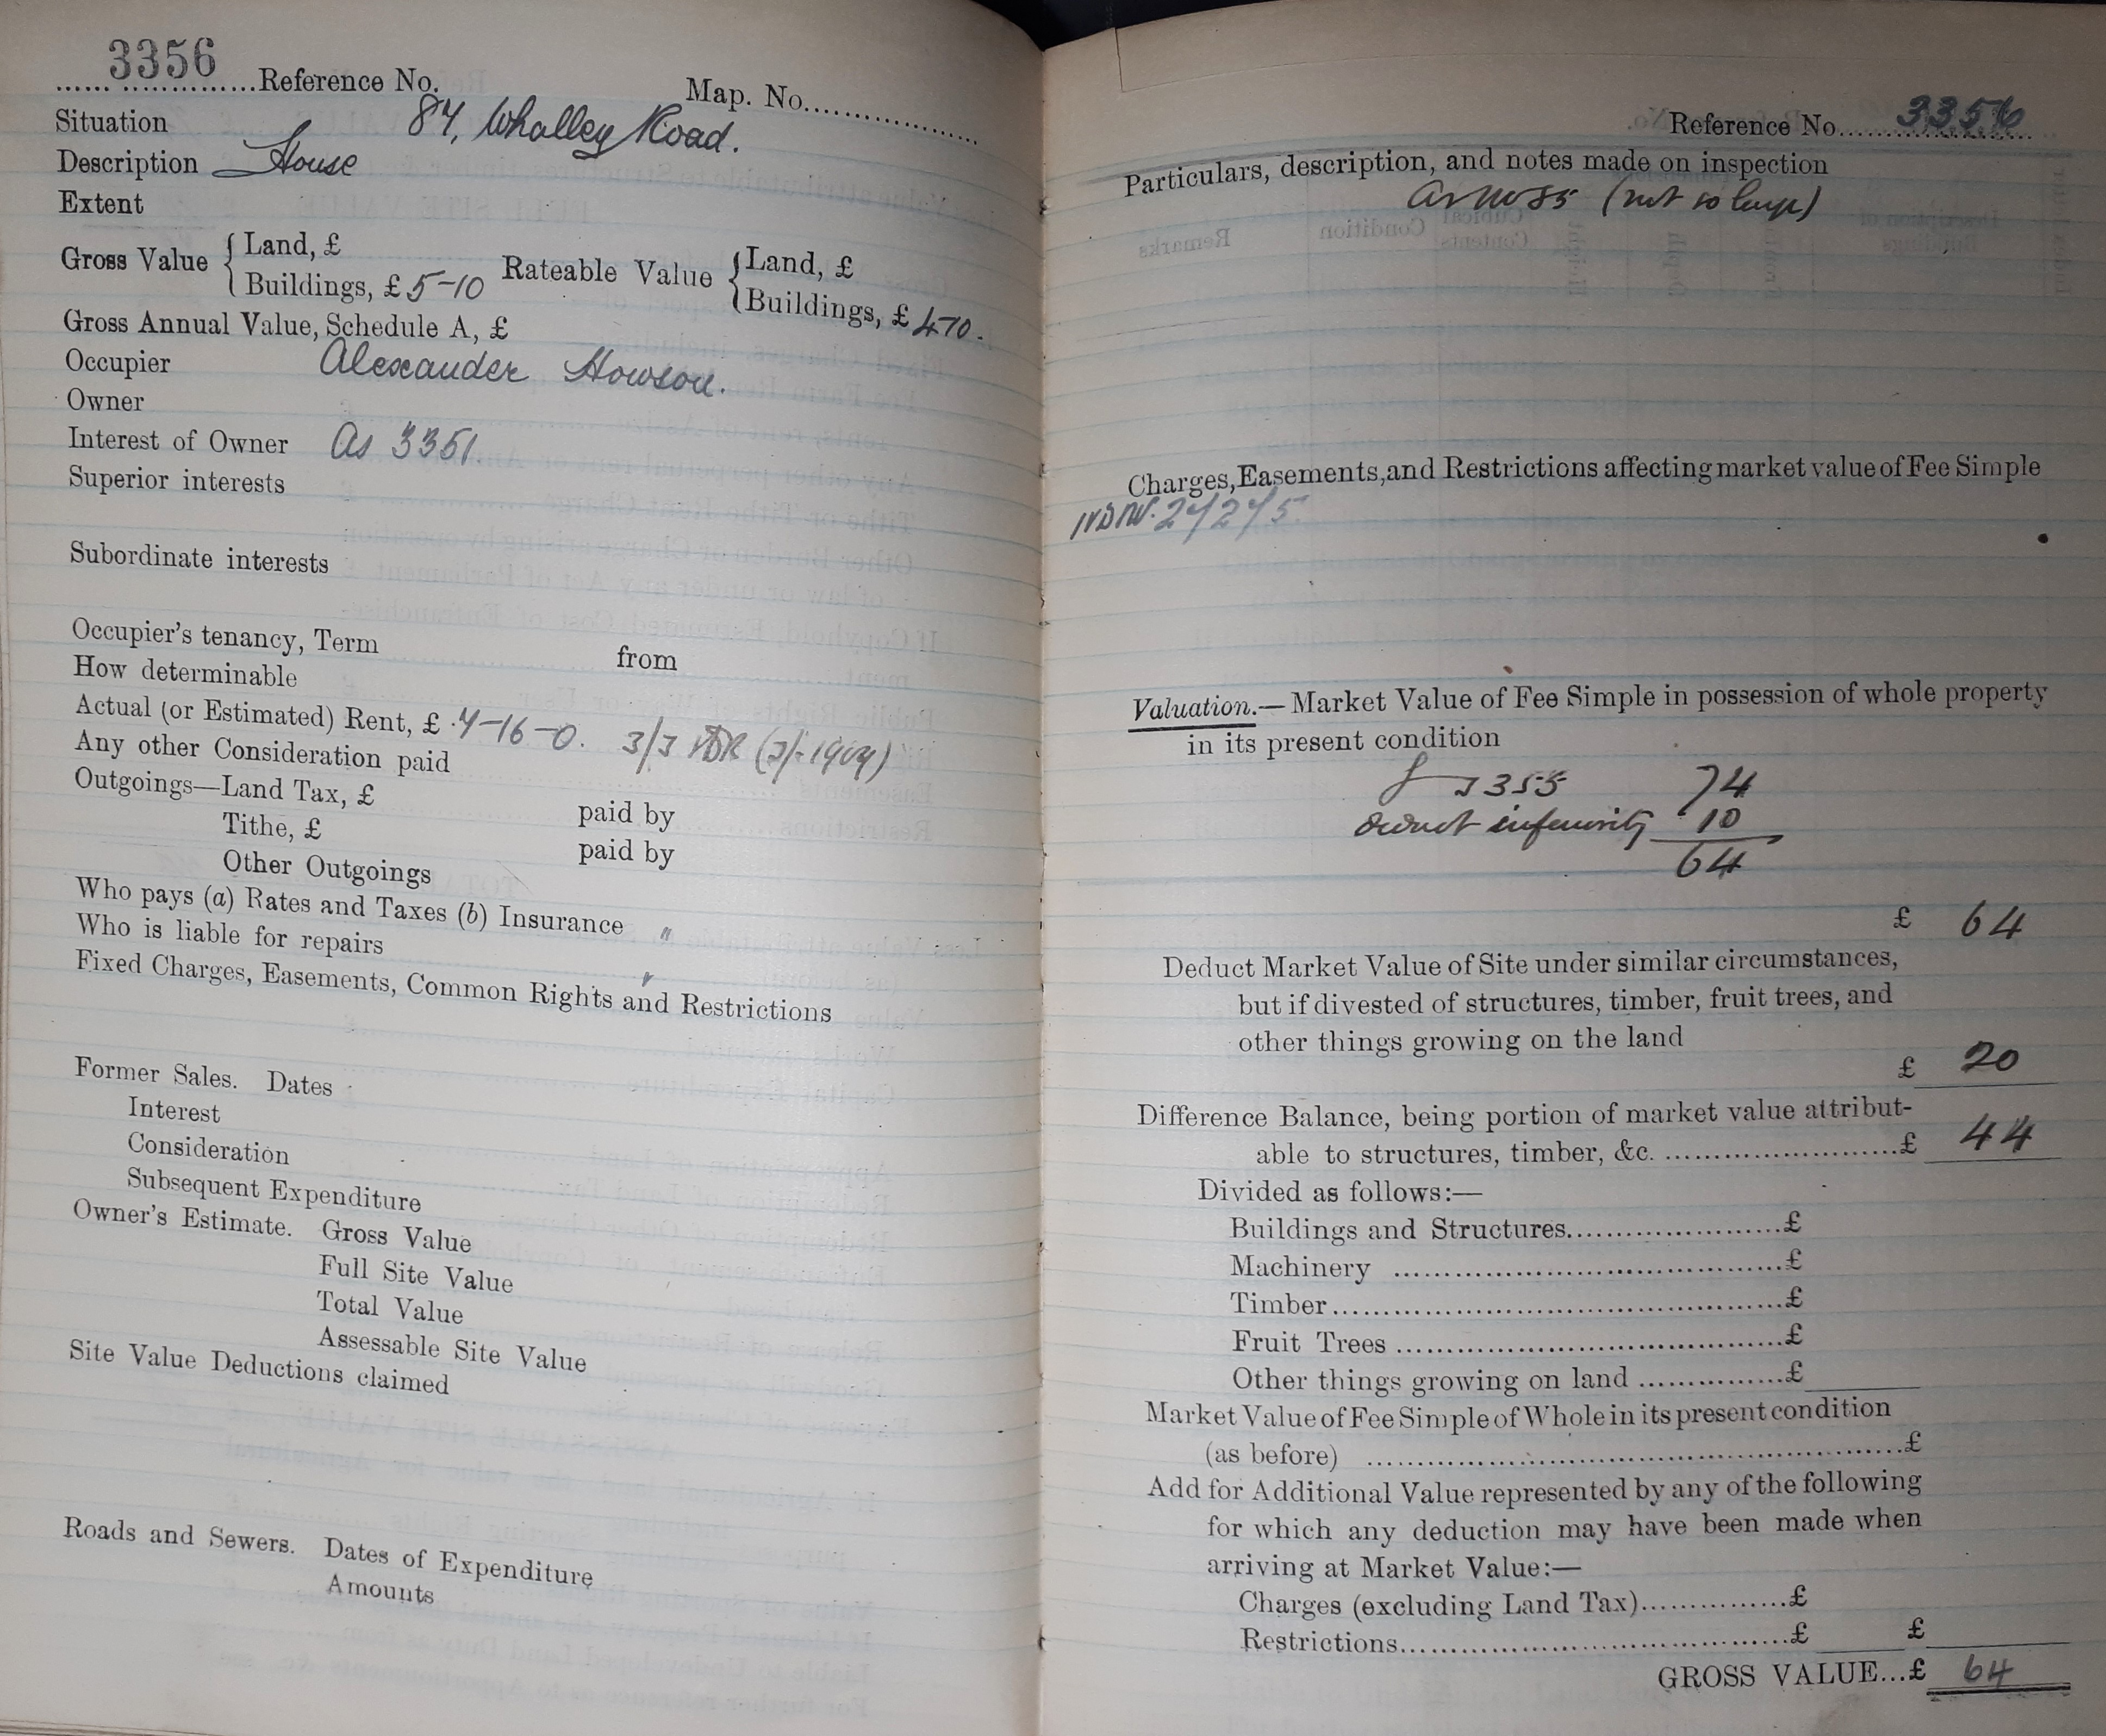 3356 Reference No. Map. No.
Situation 87, Whalley Road.
Description House
Extent
Gross Value { Land, £
Buildings, £ 5-10
Rateable Value { Land, £
Buildings, £ 4 70.
Gross Annual Value, Schedule A, £
Occupier Alexander Howson.
Owner
Interest of Owner As 3351.
Superior interests
Subordinate interests
Occupier's tenancy, Term from
How determinable
Actual (or Estimated) Rent, £ 7-16-0. 3/3 (3/- 1909)
Any other Consideration paid
Outgoings—Land Tax, £ paid by
Tithe, £ paid by
Other Outgoings
Who pays (a) Rates and Taxes (b) Insurance "
Who is liable for repairs "
Fixed Charges, Easements, Common Rights and Restrictions
Former Sales. Dates
Interest
Consideration
Subsequent Expenditure
Owner's Estimate. Gross Value
Full Site Value
Total Value
Assessable Site Value
Site Value Deductions claimed
Roads and Sewers. Dates of Expenditure
Amounts
Reference No. 3356
Particulars, description, and notes made on inspection
(not so large)
Charges, Easements, and Restrictions affecting market value of Fee Simple
Valuation.— Market Value of Fee Simple in possession of whole property
in its present condition
3355 74
deduct inferiority 10
64
£ 64
Deduct Market Value of Site under similar circumstances,
but if divested of structures, timber, fruit trees, and
other things growing on the land
£ 20
Difference Balance, being portion of market value attribut-
able to structures, timber, &c. £ 44
Divided as follows:—
Buildings and Structures £
Machinery £
Timber £
Fruit Trees £
Other things growing on land £
Market Value of Fee Simple of Whole in its present condition
(as before) £
Add for Additional Value represented by any of the following
for which any deduction may have been made when
arriving at Market Value:—
Charges (excluding Land Tax) £
Restrictions £ £
GROSS VALUE...£ 64